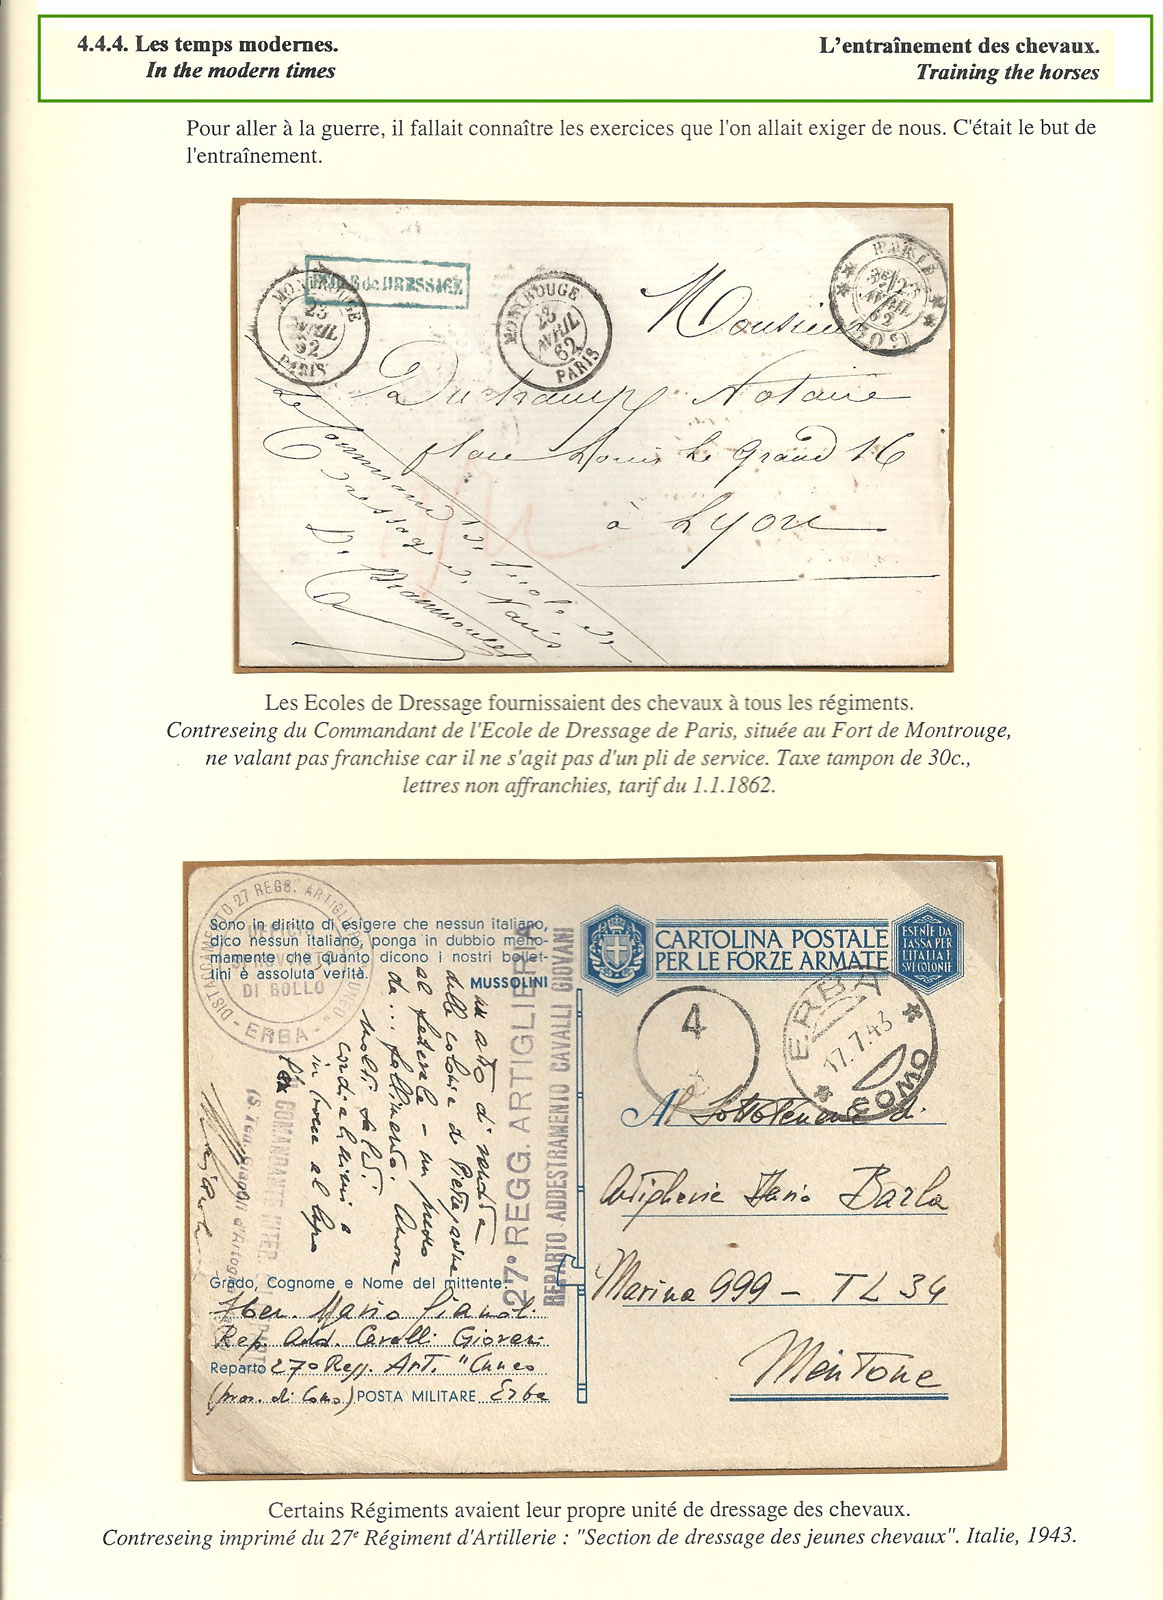 4.4.4. Les temps modernes.
In the modern times
L'entraînement des chevaux.
Training the horses
Pour aller à la guerre, il fallait connaître les exercices que l'on allait exiger de nous. C'était le but de
l'entraînement.
de DRESSAGE
MONTROUGE
23
AVRIL
62
PARIS
MONTROUGE
23
AVRIL
62
PARIS
PARIS
23
AVRIL
62
(60)
Monsieur
Duchamp Notaire
place Louis Le Grand 16
à Lyon
Le Command de l'école de
Dressage de Paris
Les Ecoles de Dressage fournissaient des chevaux à tous les régiments.
Contreseing du Commandant de l'Ecole de Dressage de Paris, située au Fort de Montrouge,
ne valant pas franchise car il ne s'agit pas d'un pli de service. Taxe tampon de 30c.,
lettres non affranchies, tarif du 1.1.1862.
DISTACCAMENTO 27 REGG. ARTIGLIERIA "CUNEO"
UFFICIO
DI BOLLO
- ERBA -
Sono in diritto di esigere che nessun italiano,
dico nessun italiano, ponga in dubbio meno-
mamente che quanto dicono i nostri bollet-
tini è assoluta verità.
MUSSOLINI
CARTOLINA POSTALE
PER LE FORZE ARMATE
ESENTE DA
TASSA PER
L'ITALIA E
SUE COLONIE
4
ERBA
17.7.43
COMO
27º REGG. ARTIGLIERIA
REPARTO ADDESTRAMENTO CAVALLI GIOVANI
un atto di
delle colonie di
al - un
da...
molti saluti
cordialissimi e
in bocca al lupo
COMANDANTE INTER.
Al Sottotenente di
Artiglieria Barla
Marina 999 - TL 34
Mentone
Grado, Cognome e Nome del mittente
Mario
Rep. Add. Cavalli Giovani
Reparto 27º Regg. Art. "Cuneo
(prov. di Como) POSTA MILITARE Erba
Certains Régiments avaient leur propre unité de dressage des chevaux.
Contreseing imprimé du 27e Régiment d'Artillerie : "Section de dressage des jeunes chevaux". Italie, 1943.